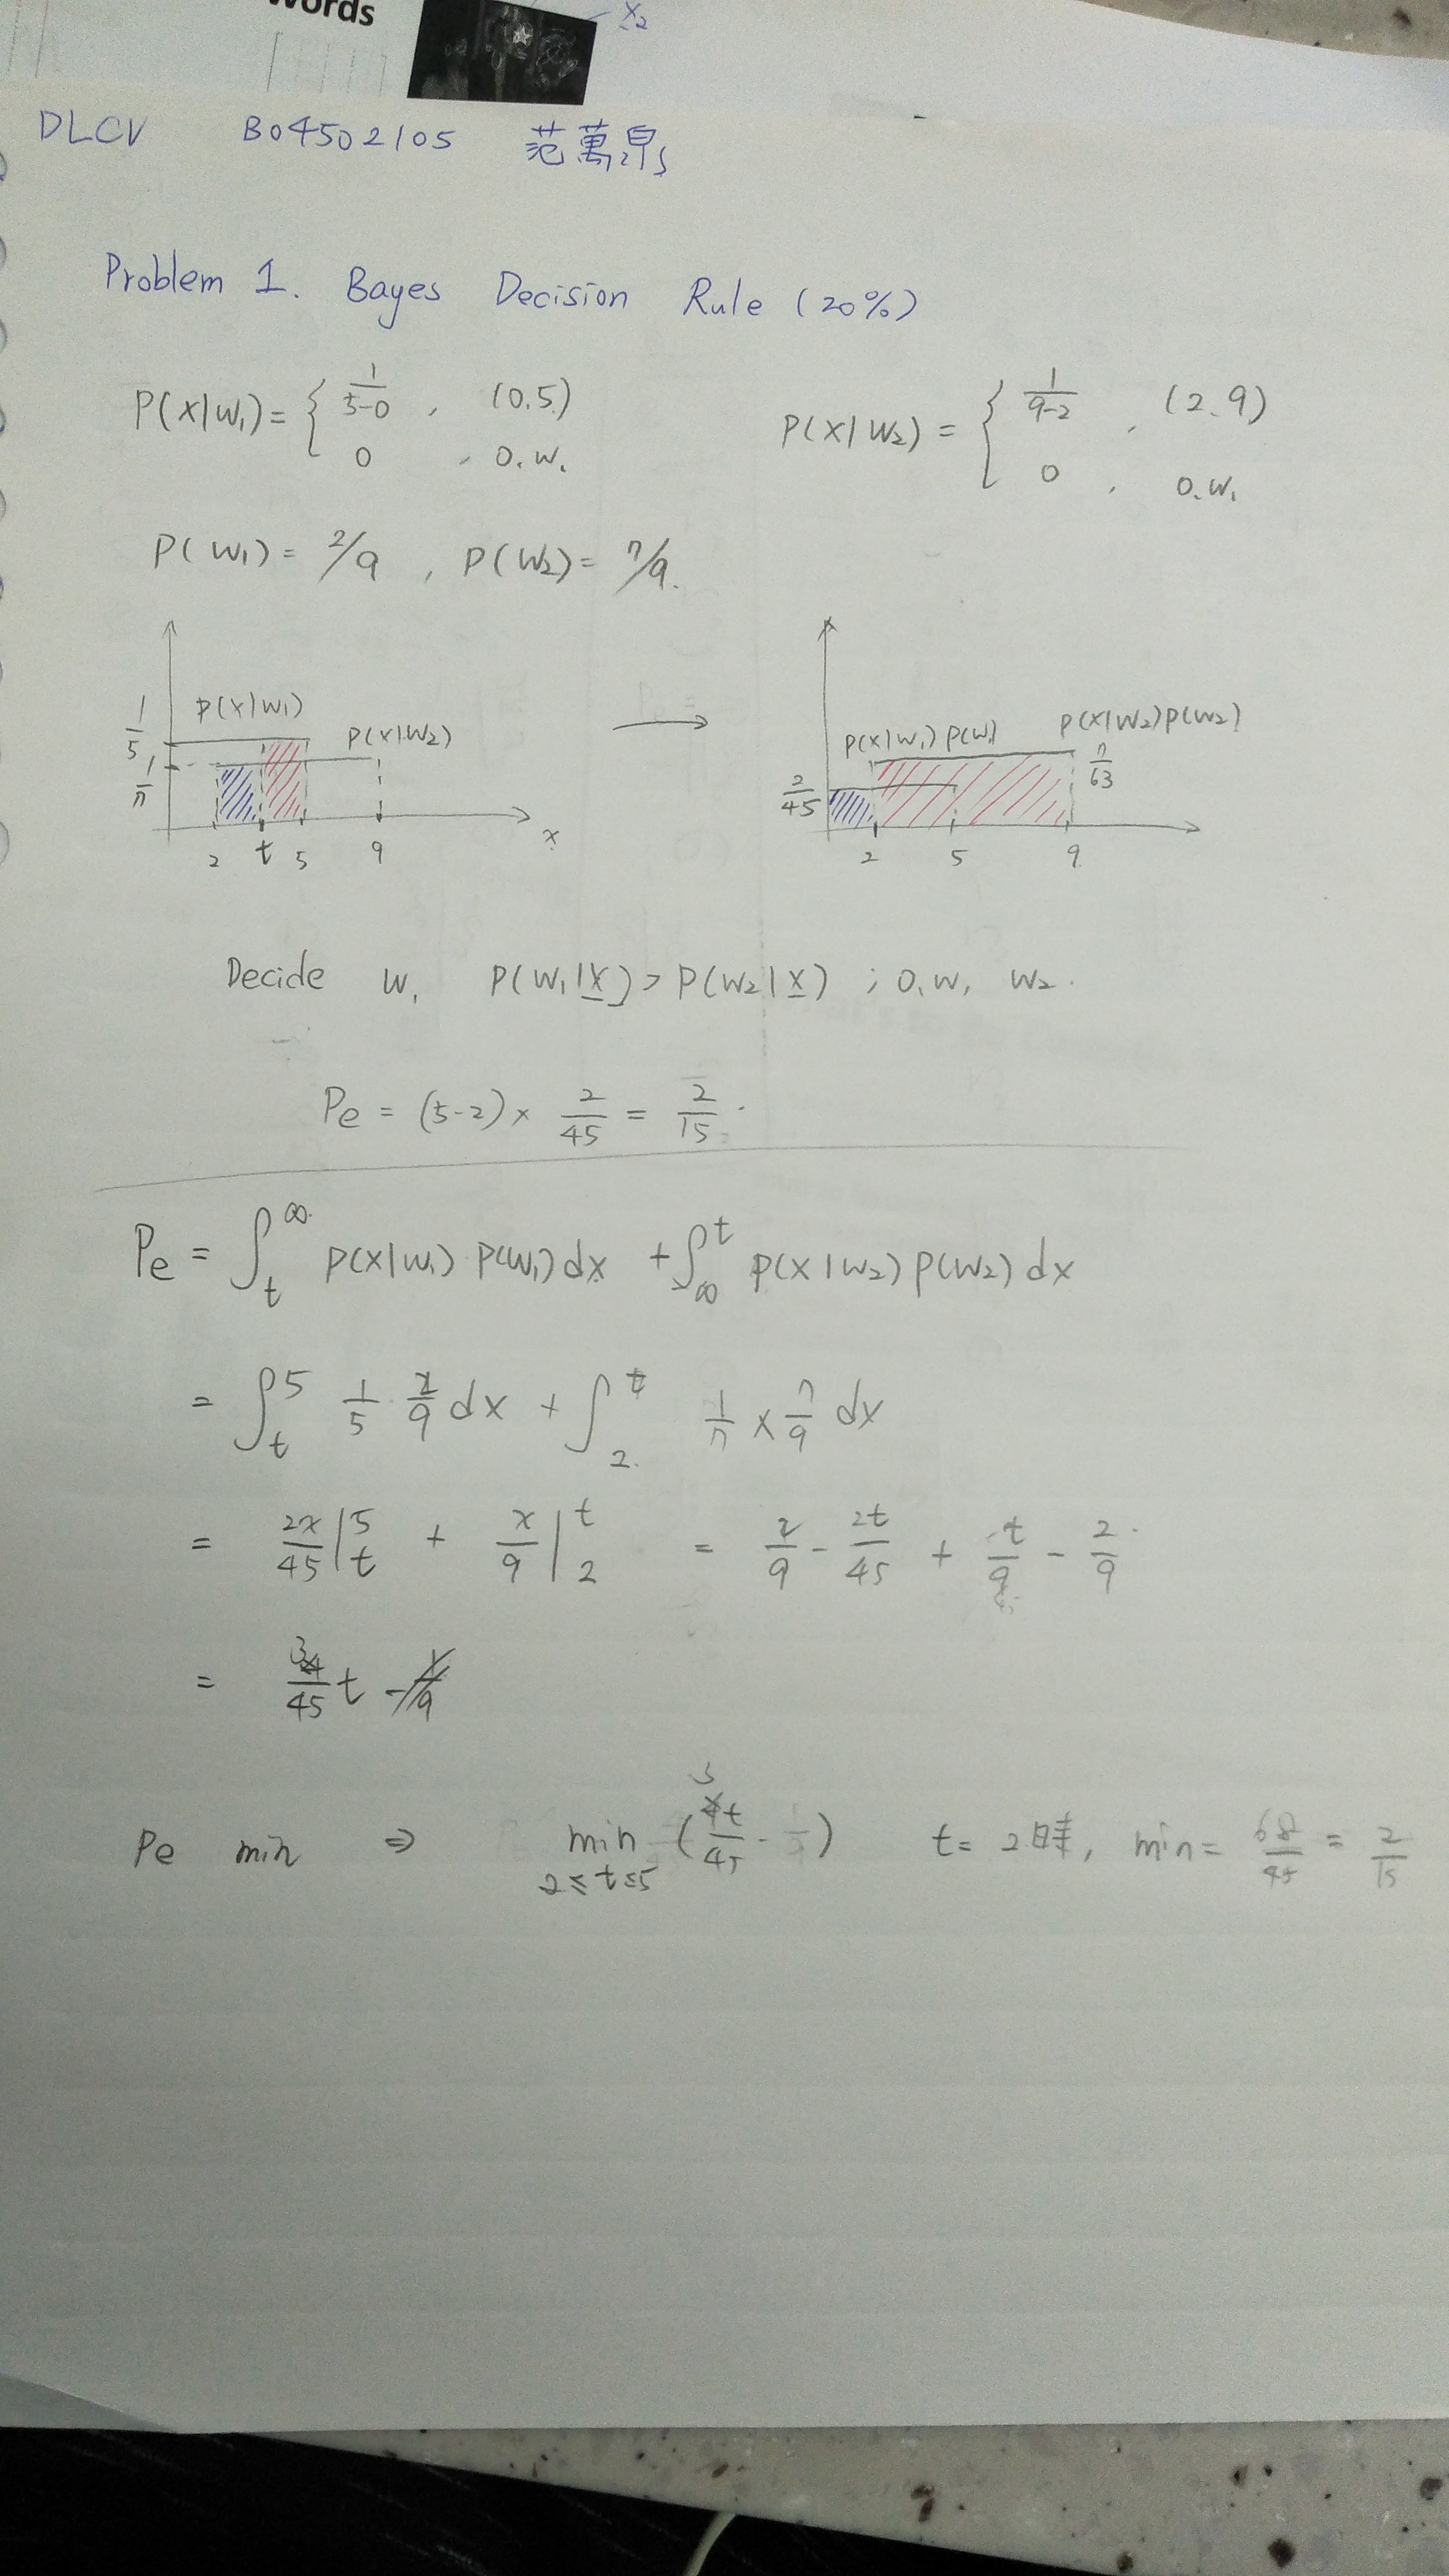 words
x₂
DLCV B04502105 范萬泉
Problem 1. Bayes Decision Rule (20%)
P(x|w₁) = { 1/(5-0) , (0.5)
0 , o.w.
P(x|w₂) = { 1/(9-2) , (2.9)
0 , o.w.
P(w₁) = 2/9 , P(w₂) = 7/9.
1/5 P(x|w₁) P(x|w₂)
1/7
2 t 5 9 x
→
P(x|w₁)P(w₁) P(x|w₂)P(w₂)
2/45 7/63
2 5 9
Decide w₁ P(w₁|x) > P(w₂|x) ; o.w. w₂.
Pe = (5-2) × 2/45 = 2/15.
Pe = ∫_t^∞ P(x|w₁) P(w₁) dx + ∫_-∞^t P(x|w₂) P(w₂) dx
= ∫_t^5 1/5 · 2/9 dx + ∫_2^t 1/7 × 7/9 dx
= 2x/45 |_t^5 + x/9 |_2^t = 2/9 - 2t/45 + t/9 - 2/9
= 3/45 t
Pe min ⇒ min 2≤t≤5 (3t/45) t = 2時, min = 6/45 = 2/15